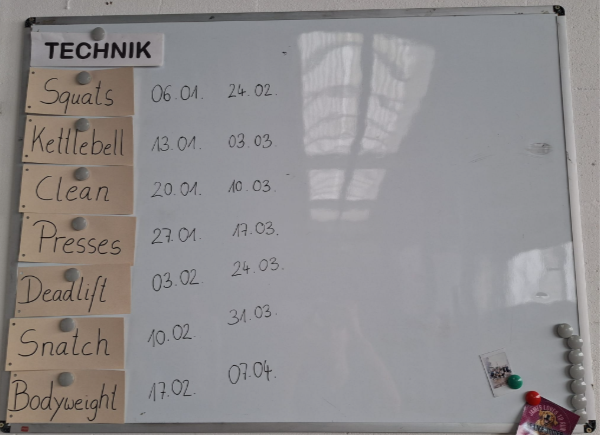 TECHNIK
Squats 06.01. 24.02.
Kettlebell 13.01. 03.03.
Clean 20.01. 10.03.
Presses 27.01. 17.03.
Deadlift 03.02. 24.03.
Snatch 10.02 31.03.
Bodyweight 17.02. 07.04.